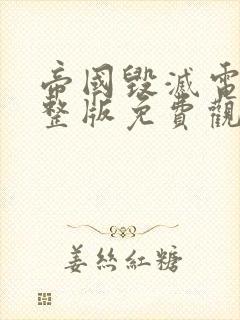 帝國毀滅電
整版免費觀
姜絲紅糖